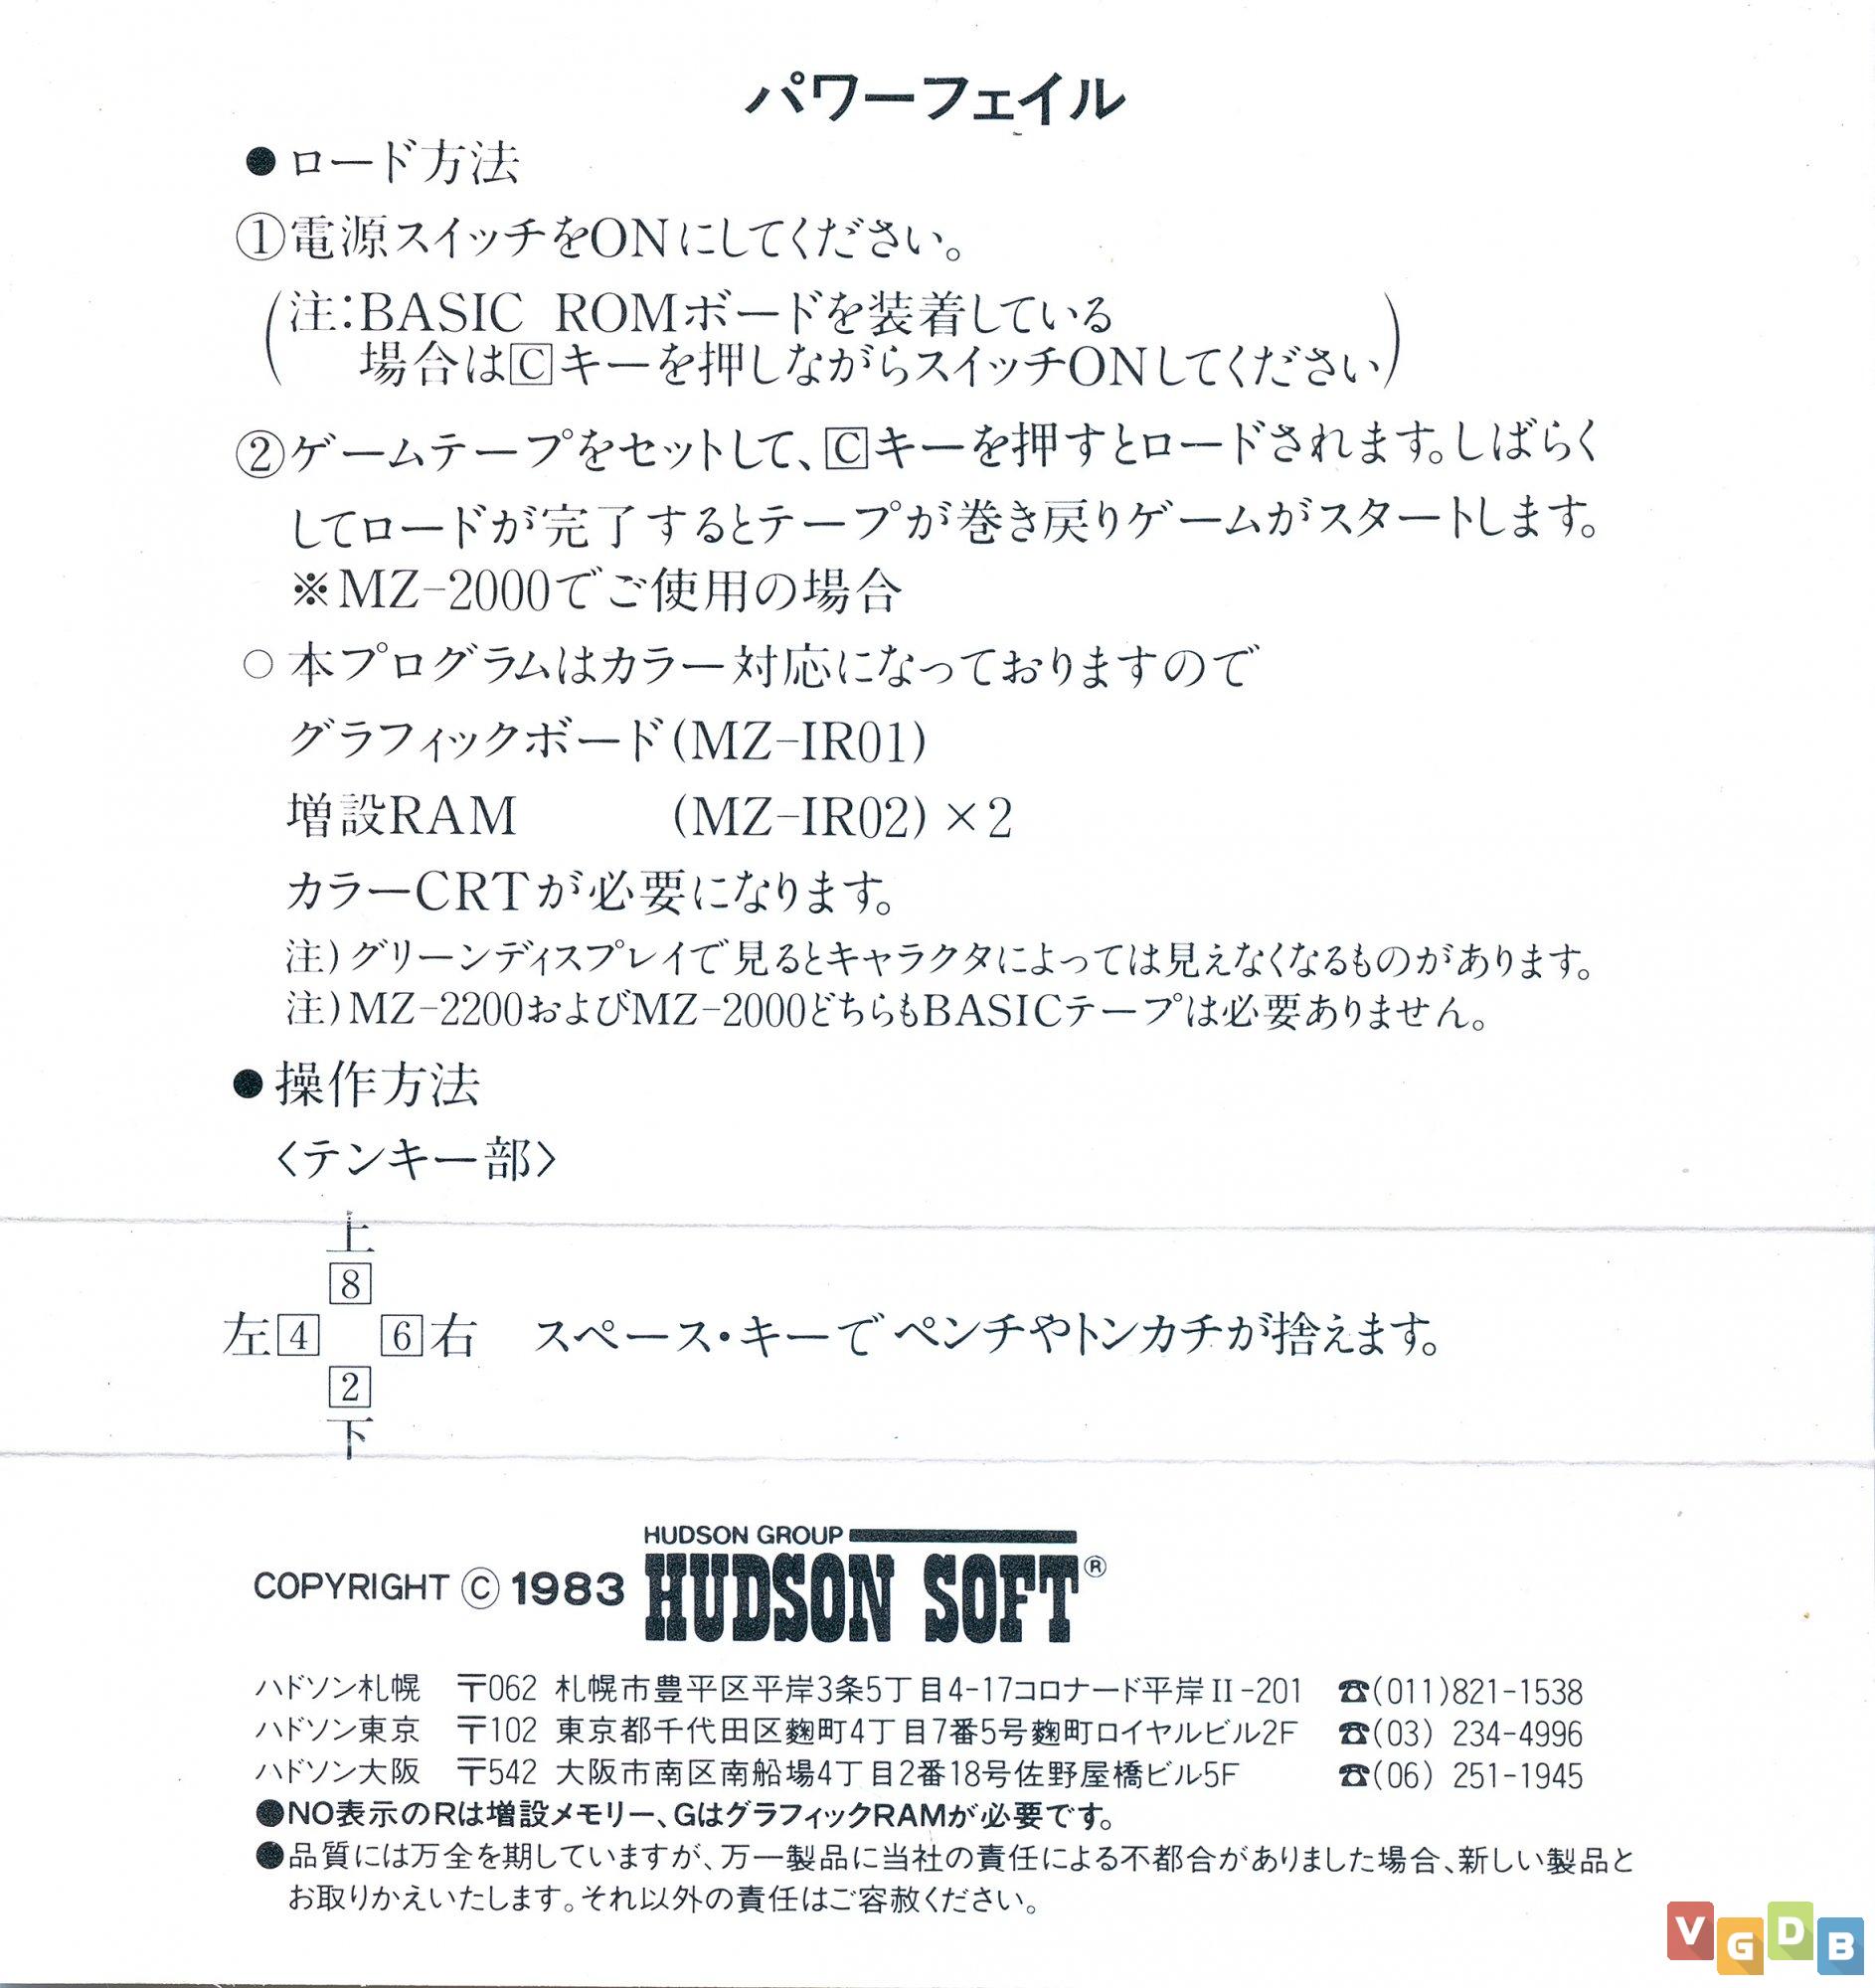 パワーフェイル
●ロード方法
①電源スイッチをONにしてください。
(注：BASIC ROMボードを装着している
場合はCキーを押しながらスイッチONしてください)
②ゲームテープをセットして、Cキーを押すとロードされます。しばらく
してロードが完了するとテープが巻き戻りゲームがスタートします。
※MZ-2000でご使用の場合
○本プログラムはカラー対応になっておりますので
グラフィックボード(MZ-IR01)
増設RAM (MZ-IR02)×2
カラーCRTが必要になります。
注)グリーンディスプレイで見るとキャラクタによっては見えなくなるものがあります。
注)MZ-2200およびMZ-2000どちらもBASICテープは必要ありません。
●操作方法
〈テンキー部〉
上
8
左4 6右 スペース・キーでペンチやトンカチが捨えます。
2
下
HUDSON GROUP
COPYRIGHT © 1983 HUDSON SOFT®
ハドソン札幌 〒062 札幌市豊平区平岸3条5丁目4-17コロナード平岸II-201 ☎(011)821-1538
ハドソン東京 〒102 東京都千代田区麹町4丁目7番5号麹町ロイヤルビル2F ☎(03) 234-4996
ハドソン大阪 〒542 大阪市南区南船場4丁目2番18号佐野屋橋ビル5F ☎(06) 251-1945
●NO表示のRは増設メモリー、GはグラフィックRAMが必要です。
●品質には万全を期していますが、万一製品に当社の責任による不都合がありました場合、新しい製品と
お取りかえいたします。それ以外の責任はご容赦ください。
VGDB